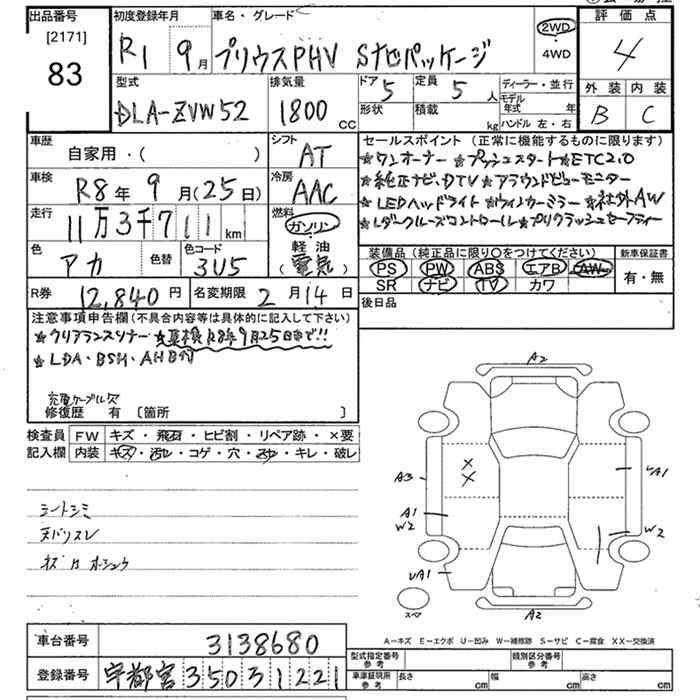 出品番号
[2171]
83
初度登録年月
R1 9月
車名・グレード
プリウスPHV Sナビパッケージ
2WD
・
4WD
評価点
4
外装 内装
B C
型式
DLA-ZVW52
排気量
1800 CC
ドア 5
形状
定員 5 人
積載 kg
ディーラー・並行
モデル年式 年
ハンドル 左・右
車歴
自家用・( )
シフト
AT
車検
R8年 9月(25日)
冷房
AAC
走行
11万3千711km
燃料
ガソリン
軽油
(電気)
色
アカ
色替
色コード
3U5
R券 12,840円
名変期限 2月14日
セールスポイント (正常に機能するものに限ります)
★ワンオーナー ★プッシュスタート ★ETC2.0
★純正ナビ、DTV ★アラウンドビューモニター
★LEDヘッドライト ★ウィンカーミラー ★社外AW
★レダークルーズコントロール ★プリクラッシュセーフティー
装備品 (純正品に限り○をつけてください)
PS PW ABS エアB AW
SR ナビ TV カワ
新車保証書
有・無
後日品
注意事項申告欄(不具合内容等は具体的に記入して下さい)
★クリアランスソナー ★車検R8年9月25日まで!!
★LDA・BSM・AHB付
充電ケーブル欠
修復歴 有 [箇所 ]
検査員
記入欄
FW キズ・飛石・ヒビ割・リペア跡・×要
内装 キズ・汚レ・コゲ・穴・スレ・キレ・破レ
シートシミ
ステバリスレ
キズ 凹 ホシュウ
A2
A3
A1
W2
UA1
スペア
××
UA1
W2
A2
A-キズ E-エクボ U-凹み W-補修跡 S-サビ C-腐食 XX-交換済
車台番号 3138680
登録番号 宇都宮 350 31221
型式指定番号
参考
類別区分番号
参考
車庫証明用
参考
長さ cm
幅 cm
高さ cm